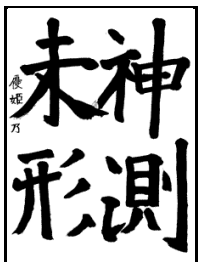 神測
未形
優姫乃